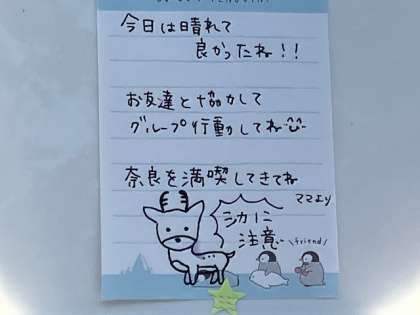 今日は晴れて
良かったね!!
お友達と協力して
グループ行動してね
奈良を満喫してきてね
ママより
シカに
注意
\friend/